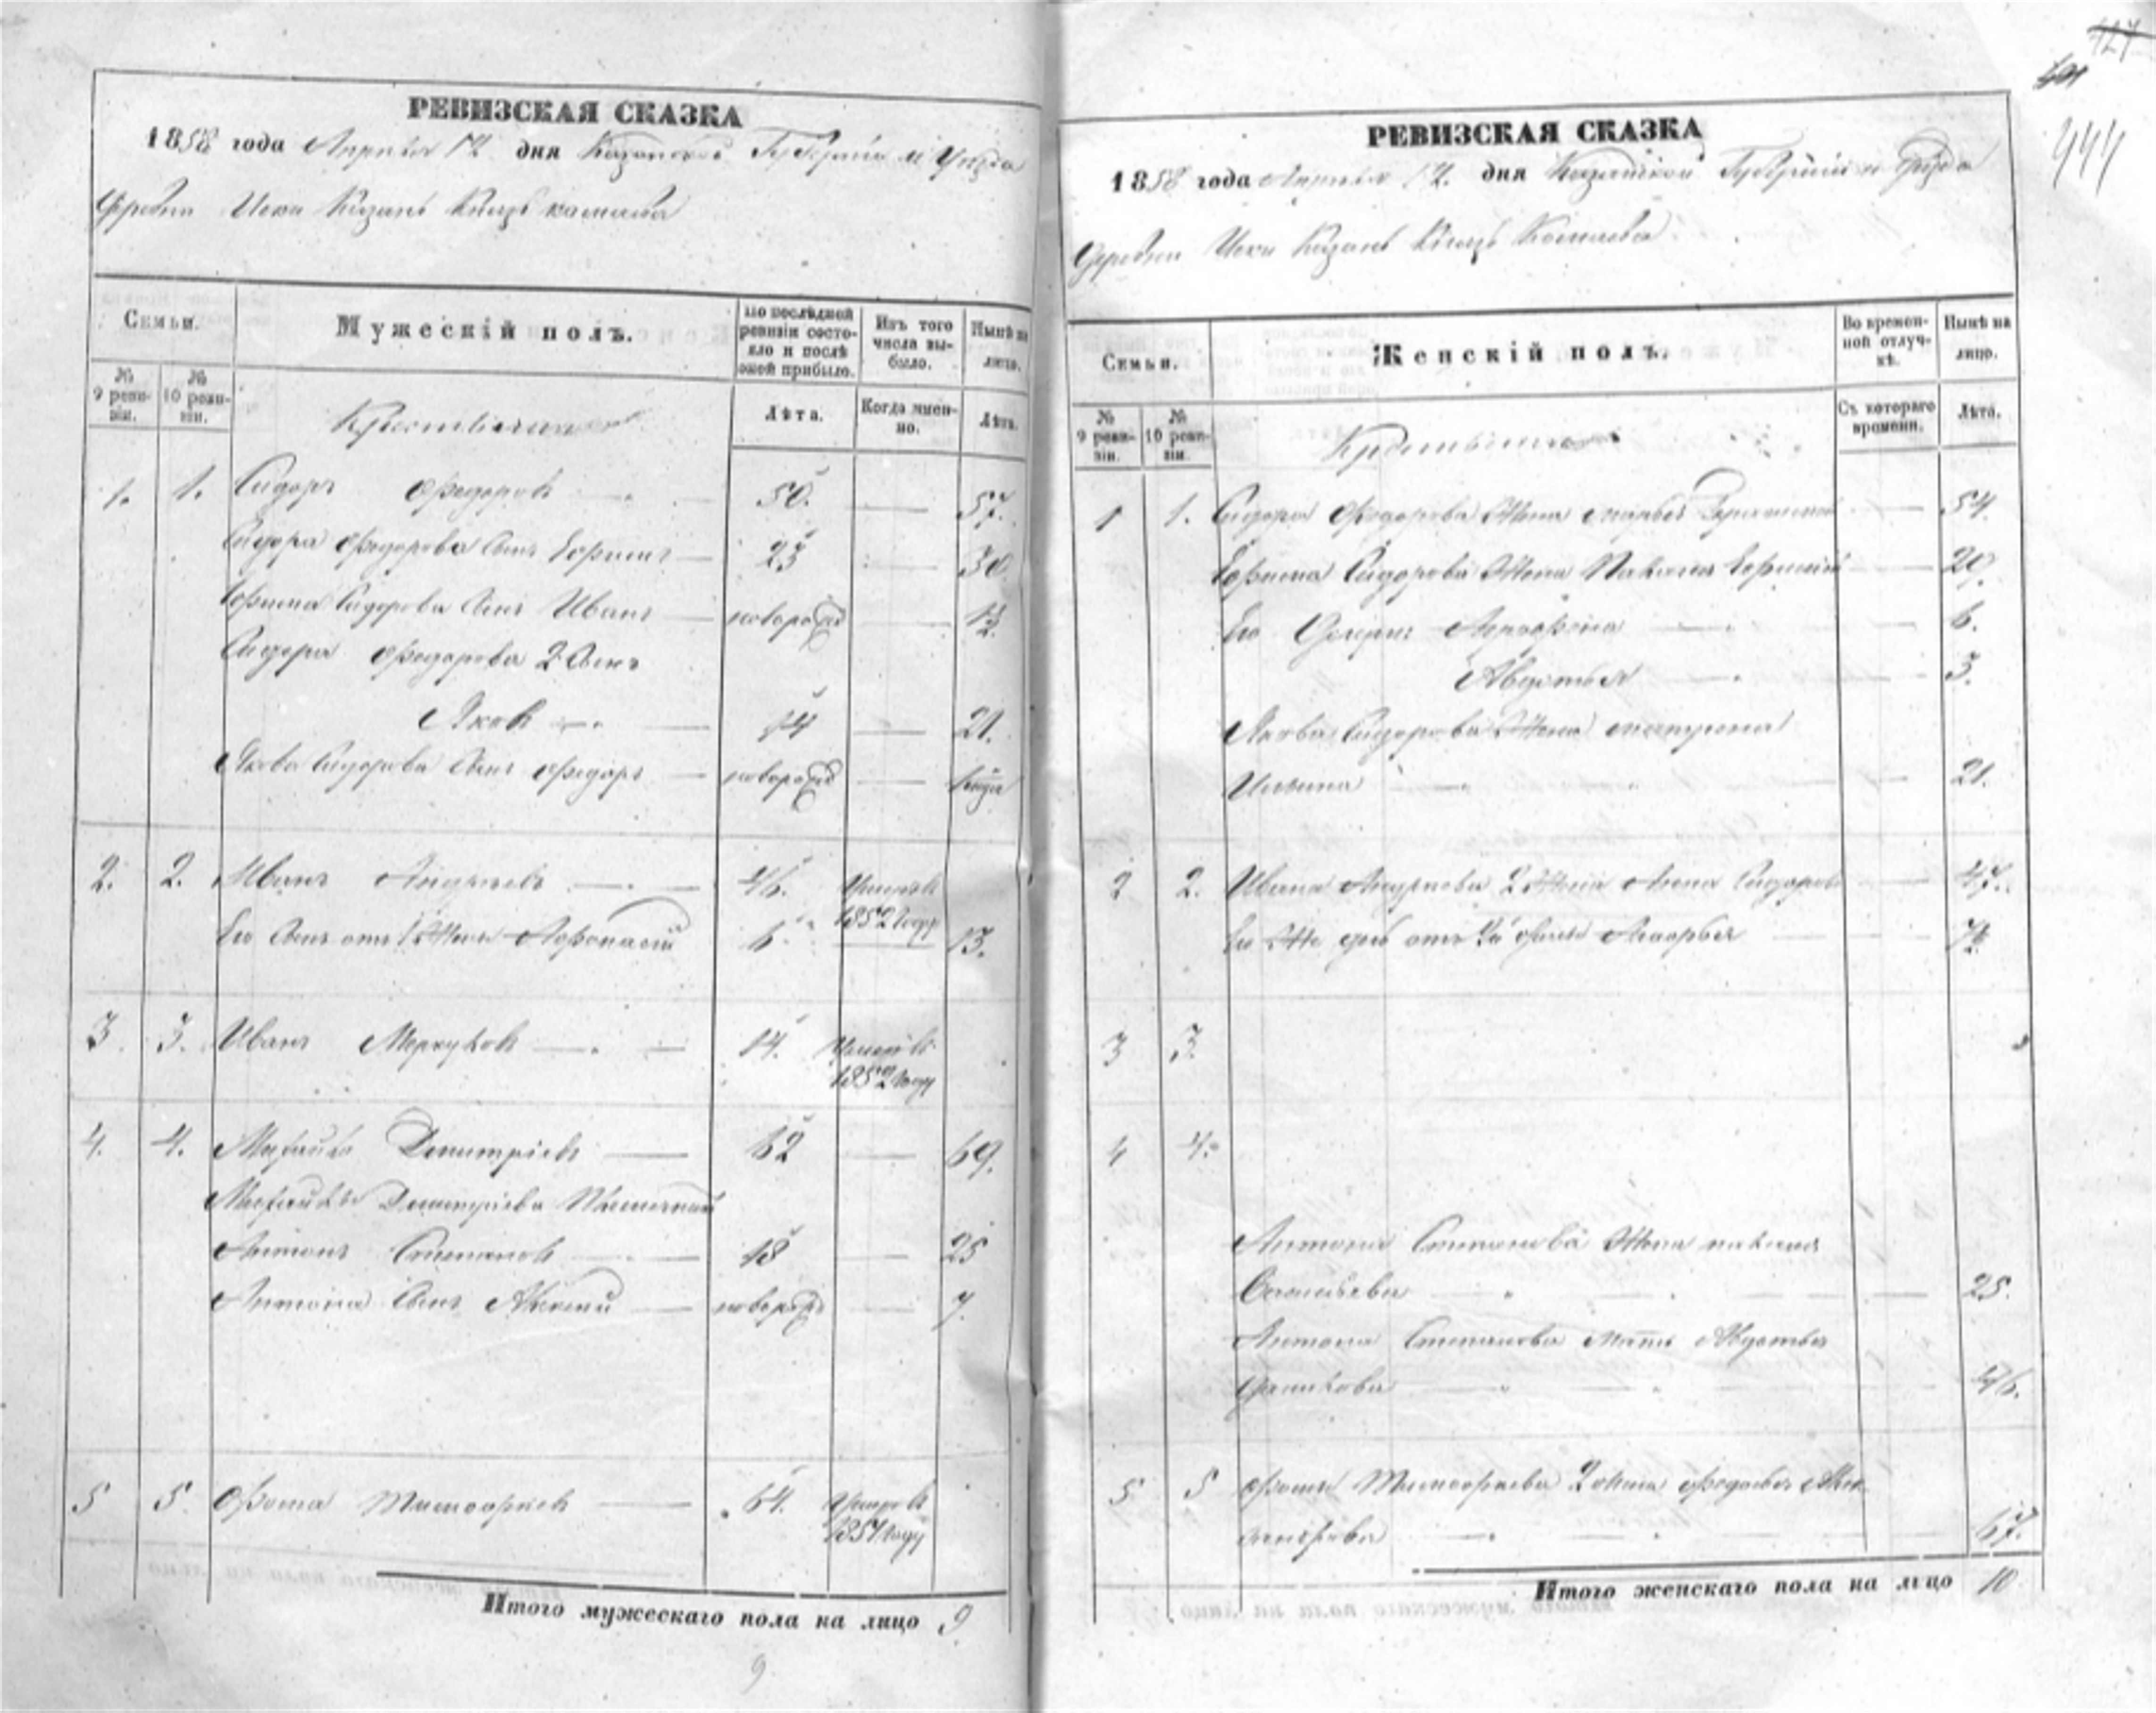 РЕВИЗСКАЯ СКАЗКА
1858 года Апреля 12 дня Казанской Губернии и Уезда
Деревни Иски Казань Князь камаева
Семьи.
Мужескій полъ.
По послѣдней ревизіи состояло и послѣ оной прибыло.
Изъ того числа выбыло.
Нынѣ на лицо.
№ 9 ревизіи.
№ 10 ревизіи.
Лѣта.
Когда именно.
Лѣта.
Крестьяне
1. 1. Сидоръ Федоровъ 50. 57.
Сидора Федорова Сынъ Ефимъ 23 30
Ефима Сидорова Сынъ Иванъ новорожд
Сидора Федорова 2 Сынъ
Яковъ 14 21.
Якова Сидорова Сынъ Федоръ новорожд
2. 2. Иванъ Андреевъ 46. Умеръ въ
1852 году
Его Сынъ отъ 1 Жены Афонасій 6 13.
3 3. Иванъ Меркуловъ 14. Умеръ въ
1852 году
4. 4. Михайла Дмитріевъ 62 69.
Михайлы Дмитріева Племянникъ
Антонъ Степановъ 18 25
Антона Сынъ Алексей новорожд 7.
5 5. Фома Тимофеевъ 64. Умеръ въ
1857 году
Итого мужескаго пола на лицо 9
9
127
444
РЕВИЗСКАЯ СКАЗКА
1858 года Апреля 12. дня Казанской Губерніи и Уезда
Деревни Иски Казань Князь Комаева
Семьи.
Женскій полъ.
Во временной отлучкѣ.
Нынѣ на лицо.
№ 9 ревизіи.
№ 10 ревизіи.
Съ котораго времени.
Лѣта.
Крестьяне
1 1. Сидора Федорова Жена Марья 54.
Ефима Сидорова Жена Ефимова 29.
Его Дочери Агрофена 6.
Авдотья 3.
Якова Сидорова Жена матрена
Ильина 21.
2 2. Ивана Андреева 2 Жена Анна Сидорова 47.
Его Же дочь отъ
3 3.
4 4.
Антона Степанова Жена
Васильева 25.
Антона Степанова Мать Авдотья
Данилова 46.
5 5 Фомы Тимофеева 2 жена Федосья
67.
Итого женскаго пола на лицо 10